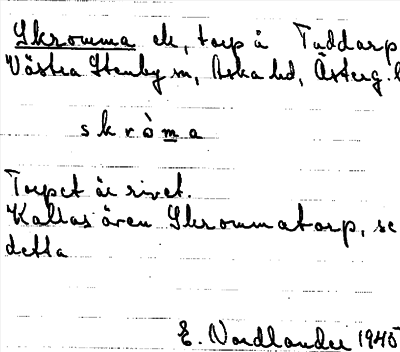 Skromma ck, torp å Taddarp
Västra Stenby sn, Aska hd, Österg.l
skròma
Torpet är rivet.
Kallas även Skrommatorp, se
detta
E. Nordlander 1945